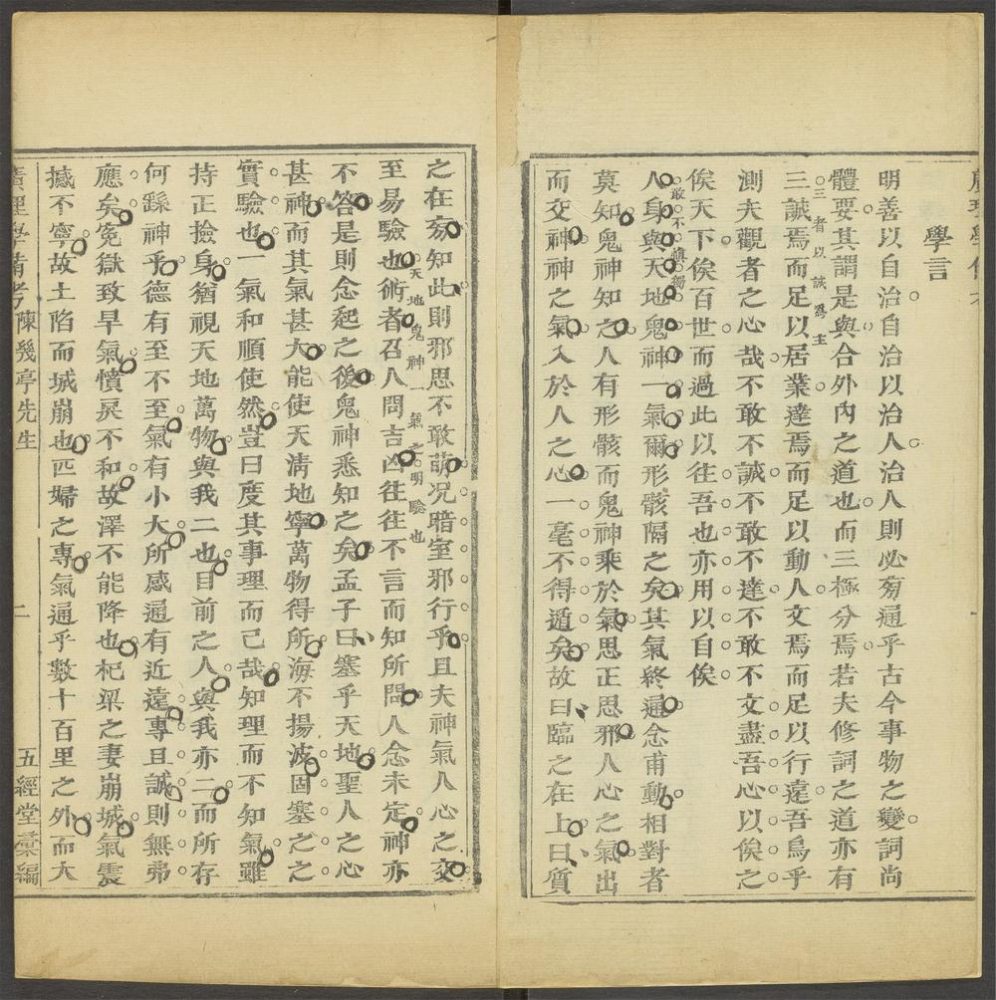 廣理學備考
學言
明善以自治自治以治人治人則必旁通乎古今事物之變詞尚
體要其謂是與合外內之道也而三極分焉若夫修詞之道亦有
三誠焉而足以居業達焉而足以動人文焉而足以行遠吾烏乎
三者以誠爲主
測夫觀者之心哉不敢不誠不敢不達不敢不文盡吾心以俟之
俟天下俟百世而過此以往吾也亦用以自俟
敢不慎獨
人身與天地鬼神一氣爾形骸隔之矣其氣終通念甫動相對者
莫知鬼神知之人有形骸而鬼神乘於氣思正思邪人心之氣出
而交神神之氣入於人之心一毫不得遁矣故曰臨之在上曰質
之在旁知此則邪思不敢萌況暗室邪行乎且夫神氣人心之交
天地鬼神一氣之明驗也
至易驗也術者召人問吉凶往往不言而知所問人念未定神亦
不答是則念起之後鬼神悉知之矣孟子曰塞乎天地聖人之心
甚神而其氣甚大能使天淸地寧萬物得所海不揚波固塞之之
實驗也一氣和順使然豈曰度其事理而已哉知理而不知氣雖
持正撿身猶視天地萬物與我二也目前之人與我亦二而所存
何繇神乎德有至不至氣有小大所感通有近遠專且誠則無弗
應矣寃獄致旱氣憤戾不和故澤不能降也杞梁之妻崩城氣震
撼不寧故土陷而城崩也匹婦之專氣通乎數十百里之外而大
廣理學備考 陳幾亭先生 二 五經堂彙編